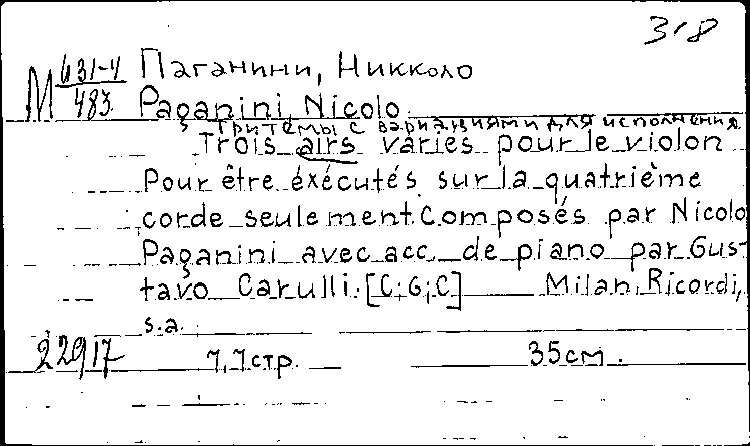 318
М 631-4/483 Паганини, Никколо
Paganini, Nicolo.
Три темы с вариациями для исполнения
Trois airs variés pour le violon
Pour être éxécutés sur la quatrième
corde seulement. Composés par Nicolo
Paganini avec acc. de piano par Gus-
tavo Carulli. [C; G; C] Milan, Ricordi,
s.a.
22917 7,7 стр. 35 см.